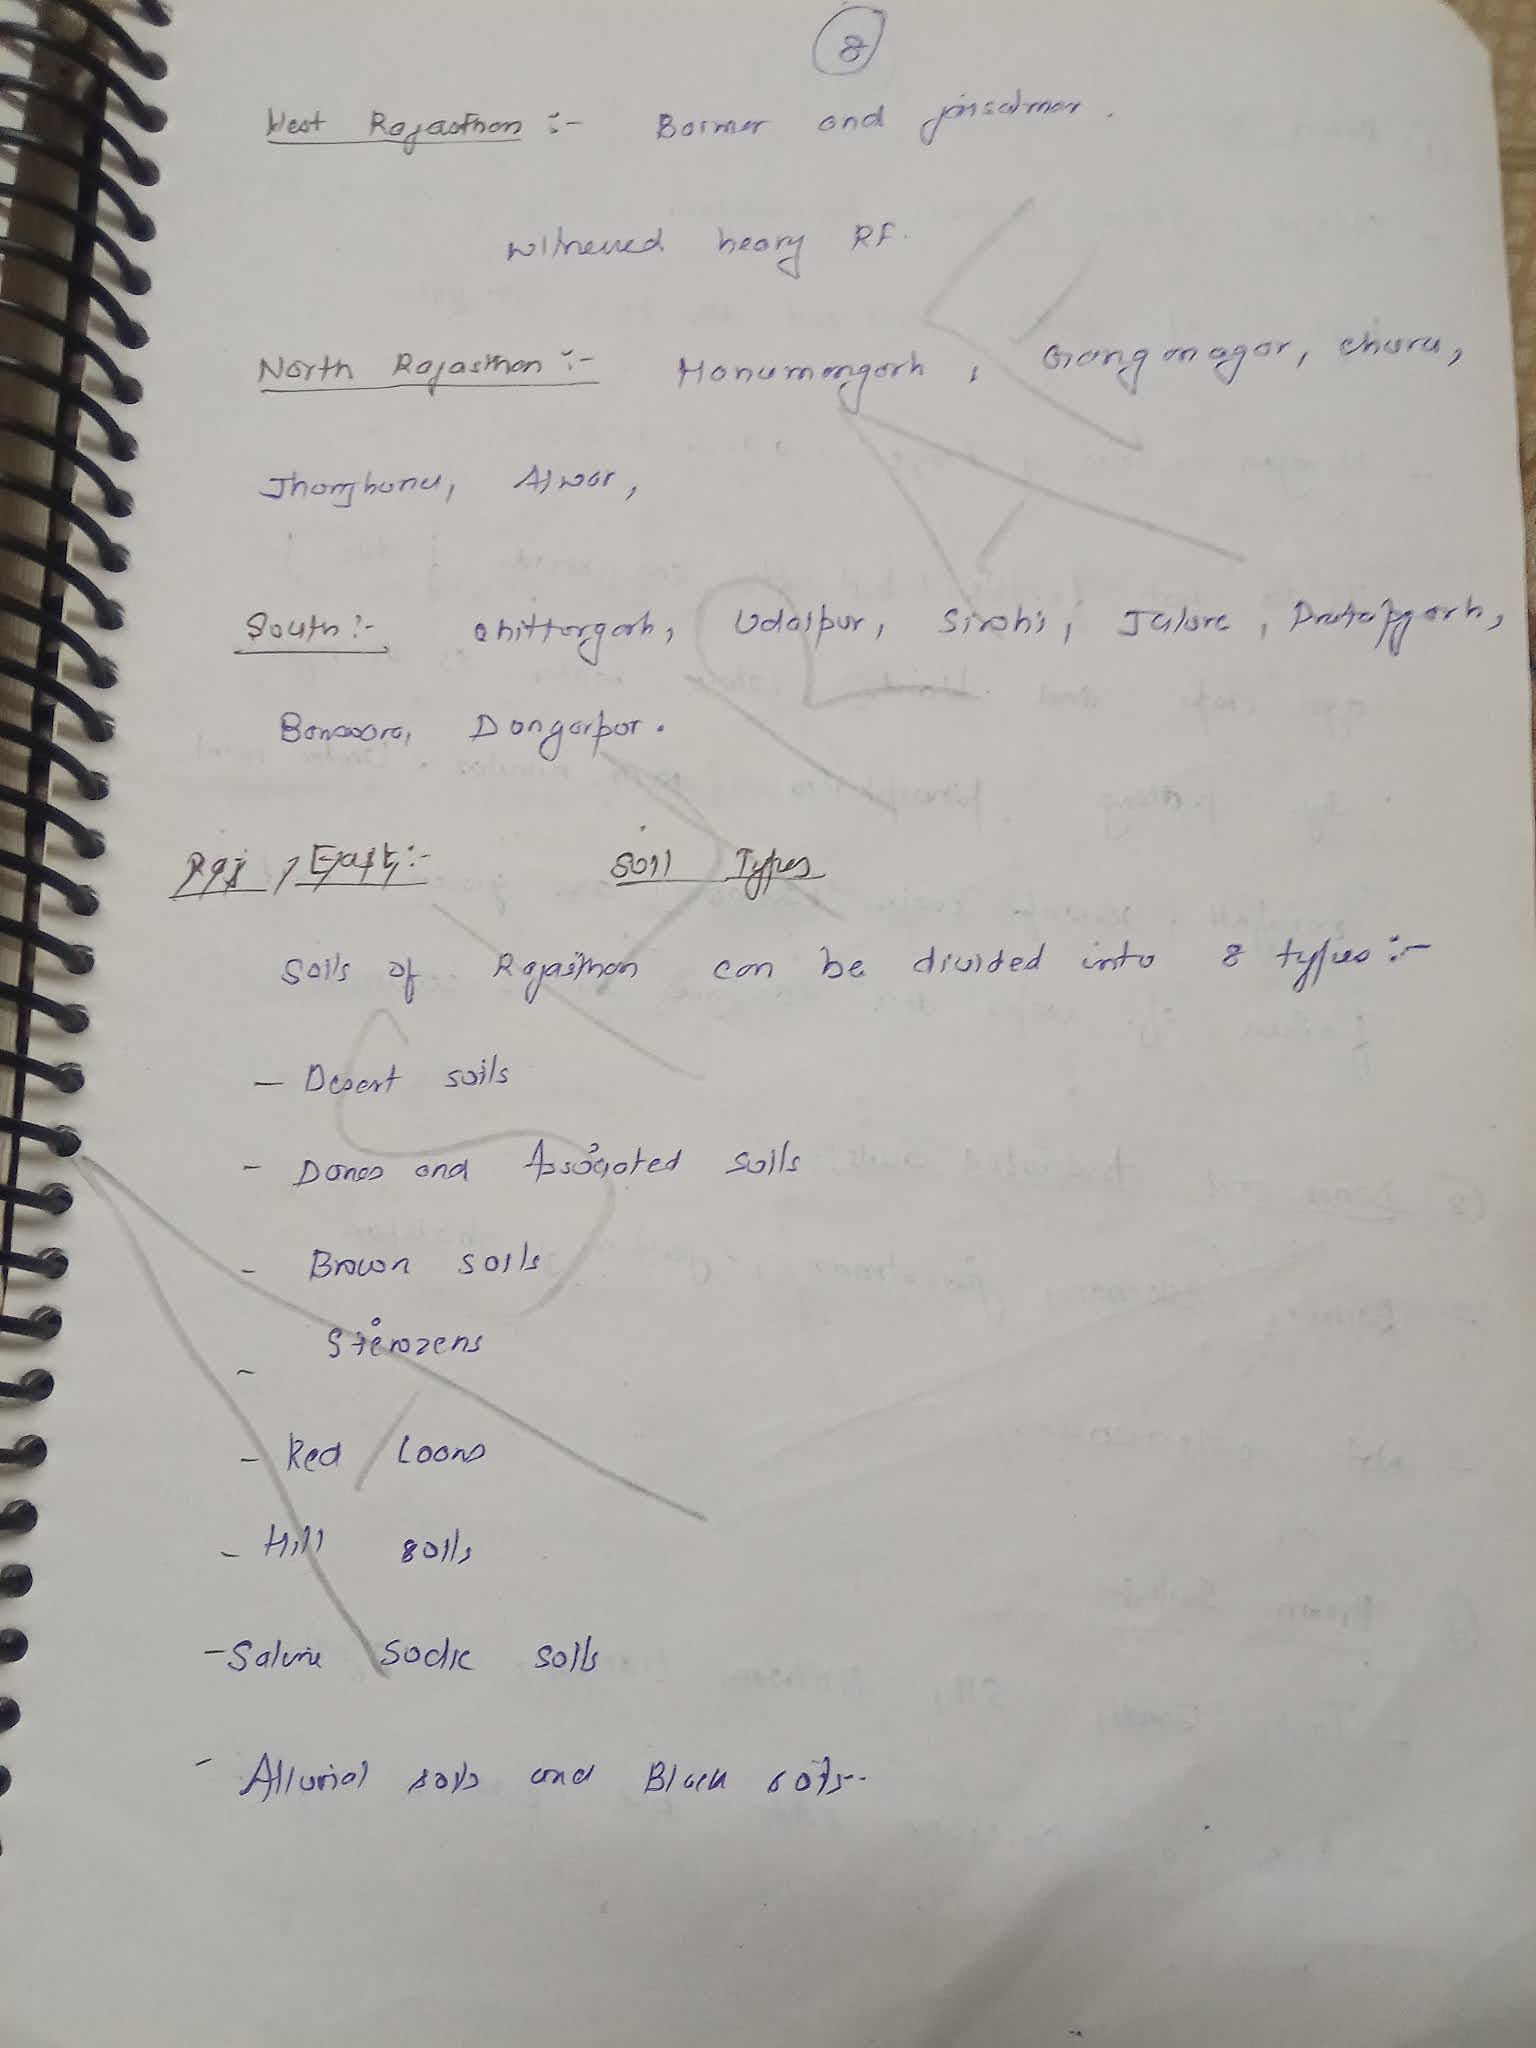 8
West Rajasthan :- Barmer and jaisalmer.
witnessed heavy RF.
North Rajasthan :- Hanumangarh, Gang anagar, churu,
Jhunjhunu, Alwar,
South :- chittorgarh, Udaipur, Sirohi, Jalore, Pratapgarh,
Banswara, Dongarpur.
Raj, East :- Soil Types
Soils of Rajasthan can be divided into 8 types :-
- Desert soils
- Dunes and Associated soils
- Brown soils
- Sierozens
- Red Looms
- Hill soils
- Saline Sodic soils
- Alluvial soils and Black soils.